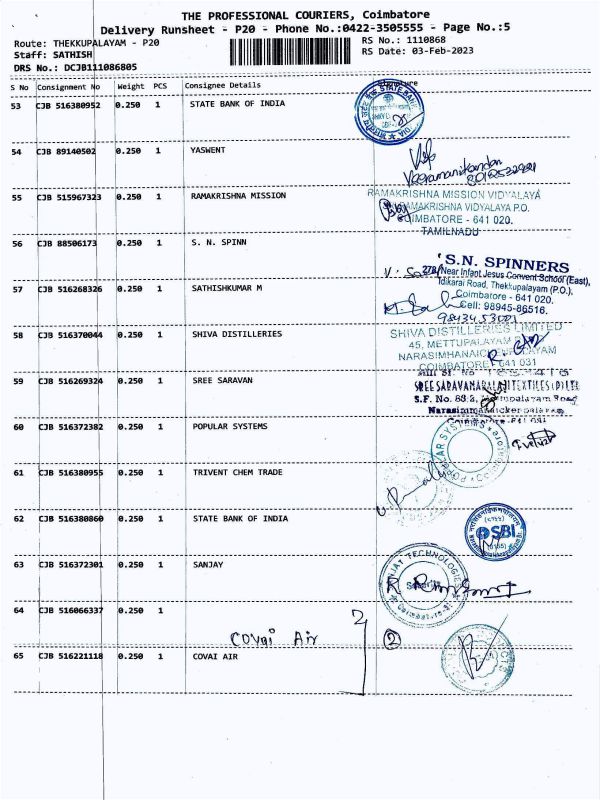 THE PROFESSIONAL COURIERS, Coimbatore
Delivery Runsheet - P20 - Phone No.:0422-3505555 - Page No.:5
Route: THEKKUPALAYAM - P20
RS No.: 1110868
Staff: SATHISH
RS Date: 03-Feb-2023
DRS No.: DCJB111086805
S No Consignment No Weight PCS Consignee Details
53 CJB 516380952 0.250 1 STATE BANK OF INDIA
54 CJB 89140502 0.250 1 YASWENT
55 CJB 515967323 0.250 1 RAMAKRISHNA MISSION
RAMAKRISHNA MISSION VIDYALAYA
RAMAKRISHNA VIDYALAYA P.O.
COIMBATORE - 641 020.
TAMILNADU
56 CJB 88506173 0.250 1 S. N. SPINN
S.N. SPINNERS
27B/Near Infant Jesus Convent School (East),
Idikarai Road, Thekkupalayam (P.O.),
Coimbatore - 641 020.
Cell: 98945-86516.
57 CJB 516268326 0.250 1 SATHISHKUMAR M
58 CJB 516370044 0.250 1 SHIVA DISTILLERIES
SHIVA DISTILLERIES LIMITED
45, METTUPALAYAM
COIMBATORE - 641 031
59 CJB 516269324 0.250 1 SREE SARAVAN
60 CJB 516372382 0.250 1 POPULAR SYSTEMS
61 CJB 516380955 0.250 1 TRIVENT CHEM TRADE
62 CJB 516380860 0.250 1 STATE BANK OF INDIA
SBI
63 CJB 516372301 0.250 1 SANJAY
SANJAY TECHNOLOGIES
64 CJB 516066337 0.250 1
COVAI Air
2
65 CJB 516221118 0.250 1 COVAI AIR